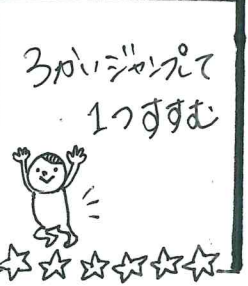 3かいジャンプして
1つすすむ